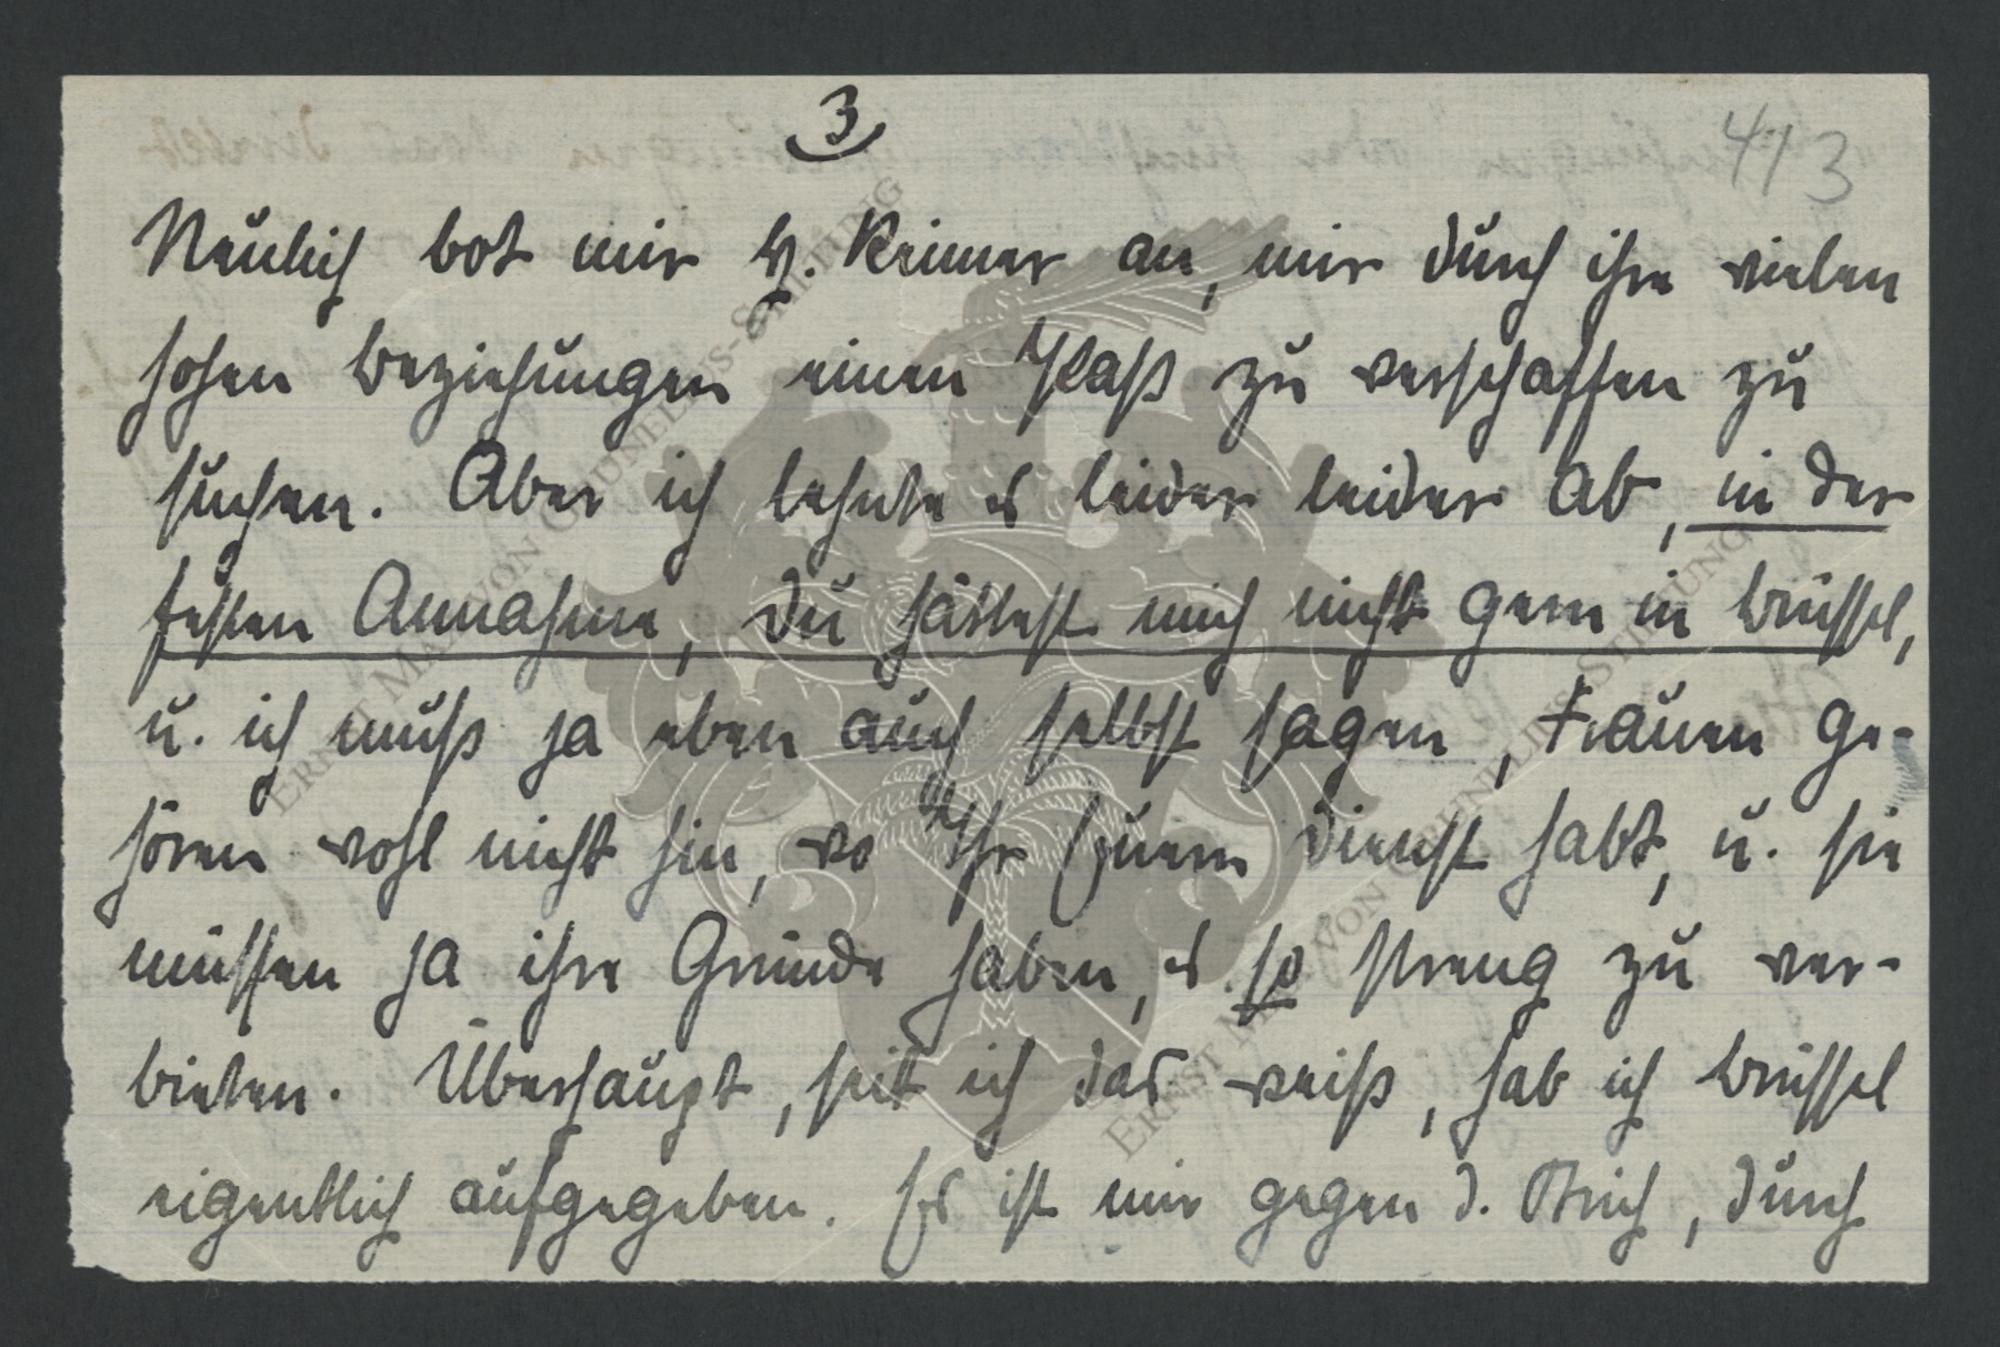 3
413
Neulich bot mir H. Reimer an, mir durch ihre vielen
hohen Beziehungen einen Paß zu verschaffen zu
suchen. Aber ich lehnte es leider leider ab, in der
festen Annahme, Du hättest mich nicht gern in Brüssel,
u. ich muß ja eben auch selbst sagen, Frauen ge-
hören wohl nicht hin, wo Ihr Euern Dienst habt, u. sie
müssen ja ihre Gründe haben, es so streng zu ver-
bieten. Überhaupt, seit ich das weiß, hab ich Brüssel
eigentlich aufgegeben. Es ist mir gegen d. Strich, durch
ERNST MAX VON GRUNELIUS-STIFTUNG
ERNST MAX VON GRUNELIUS-STIFTUNG